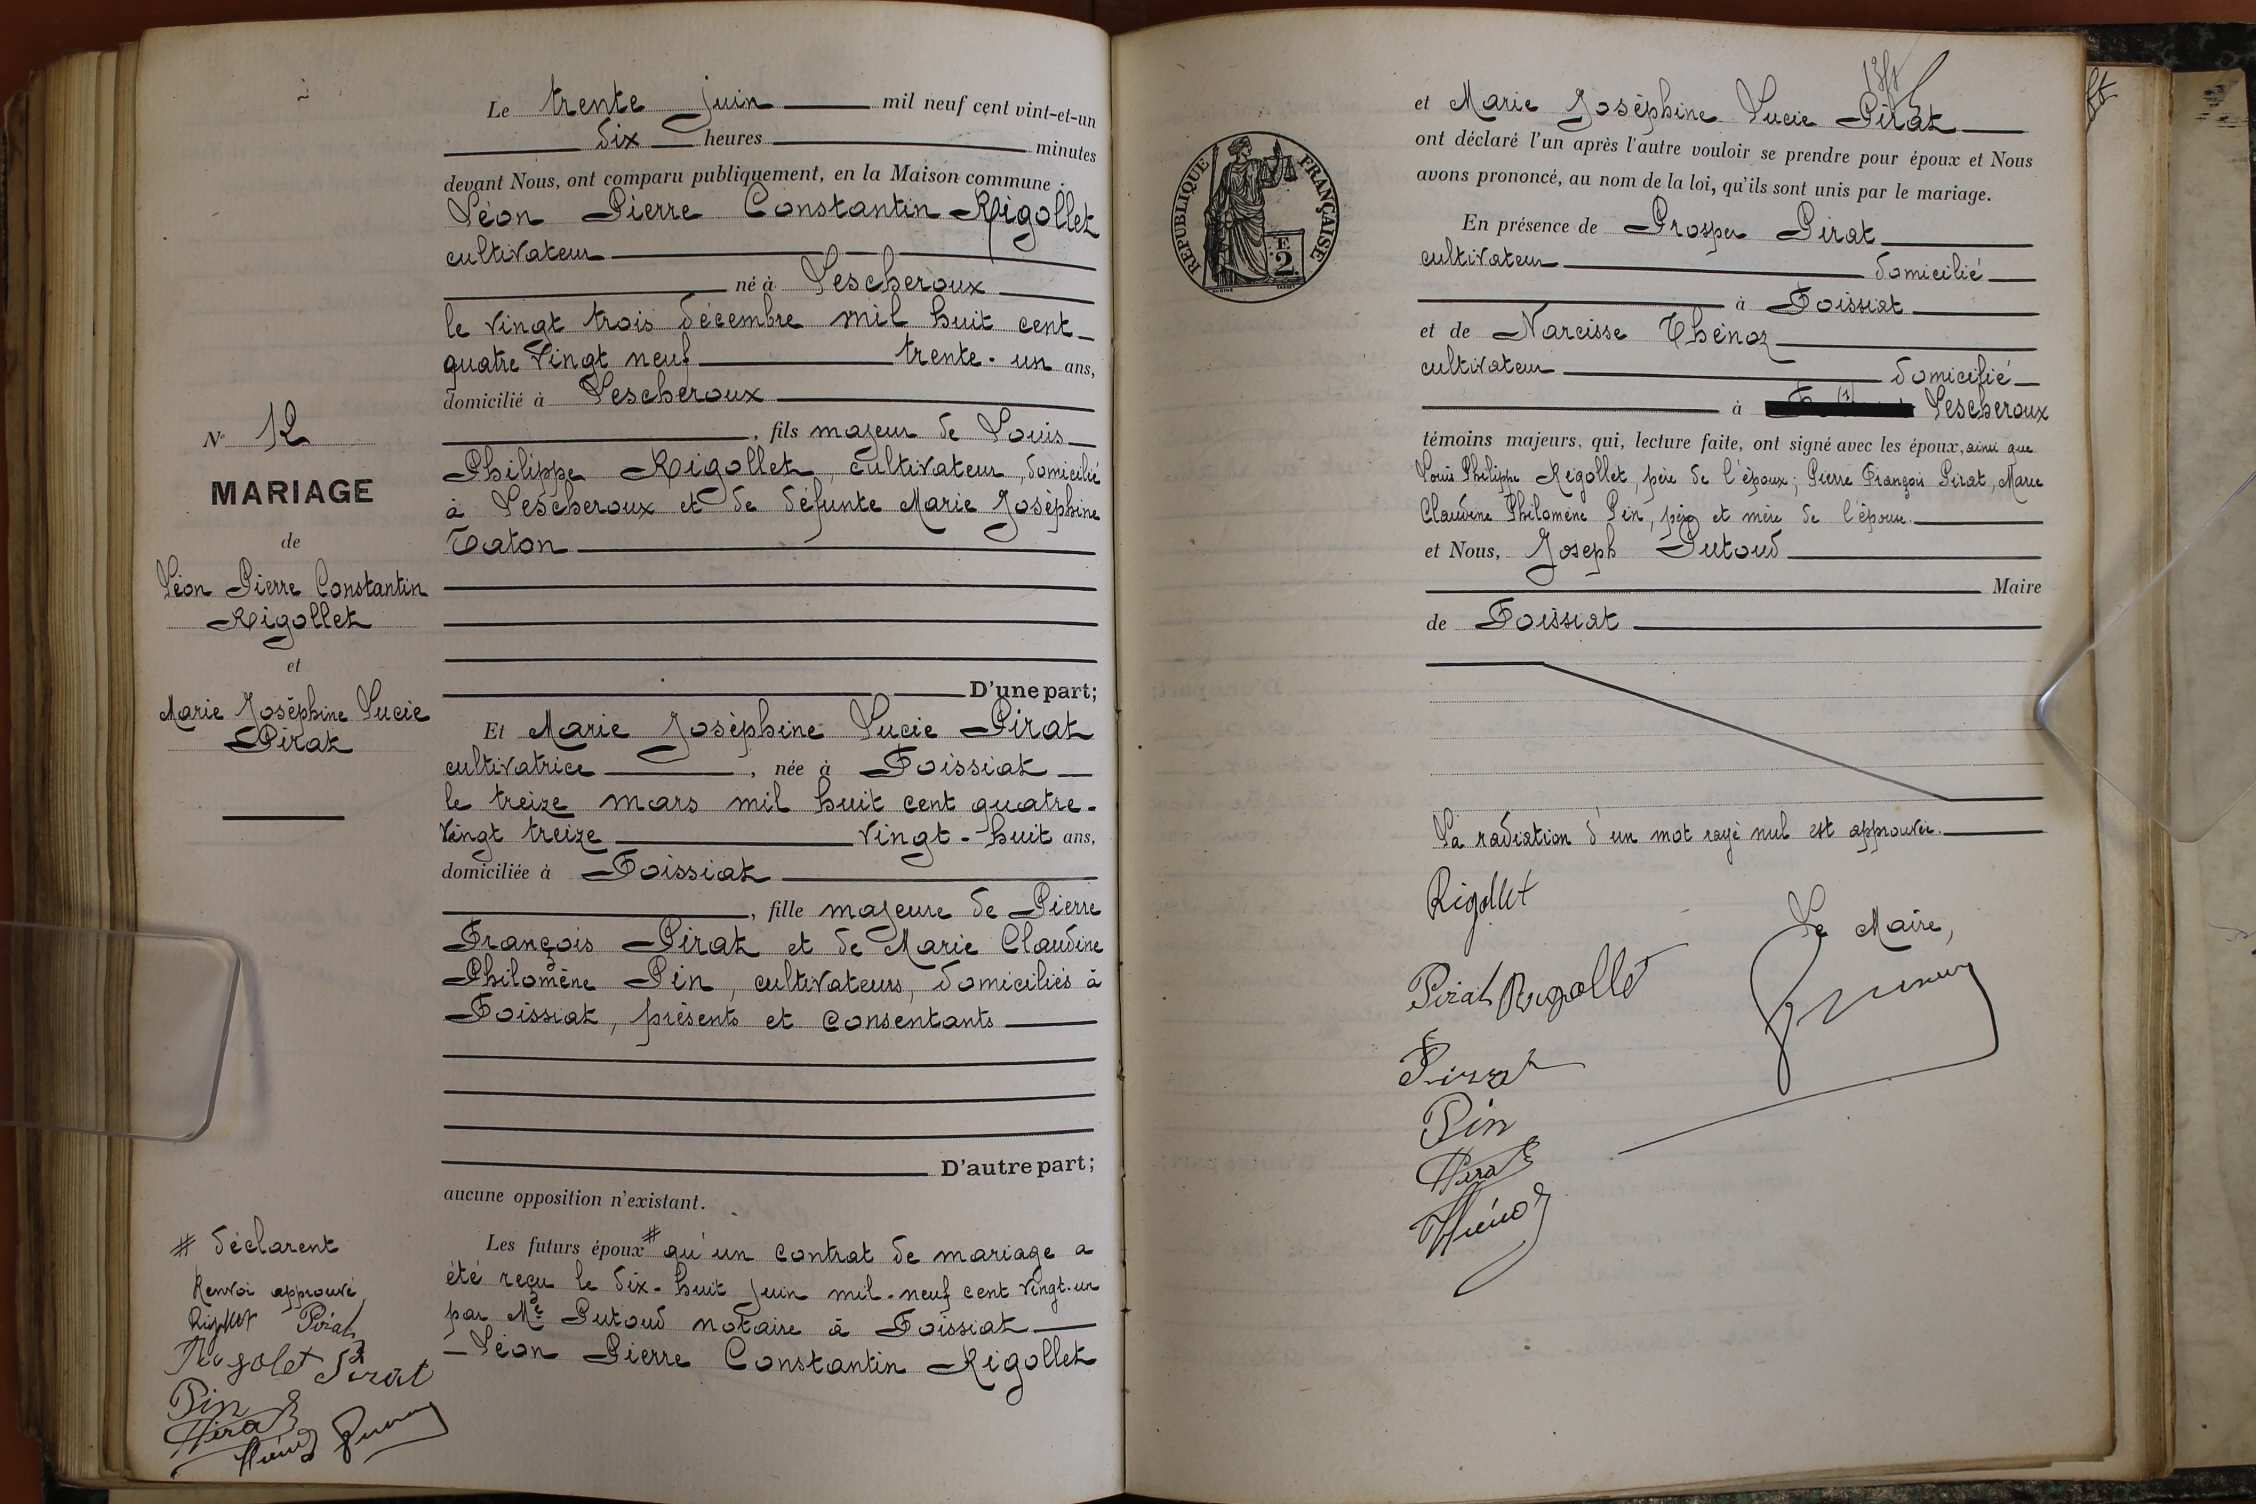 Le trente Juin mil neuf cent vint-et-un
dix heures minutes
devant Nous, ont comparu publiquement, en la Maison commune :
Léon Pierre Constantin Rigollet
cultivateur
né à Lescheroux
le vingt trois décembre mil huit cent
quatre vingt neuf trente-un ans,
domicilié à Lescheroux
, fils majeur de Louis
Philippe Rigollet, cultivateur, domicilié
à Lescheroux et de défunte Marie Joséphine
Taton
D'une part;
Et Marie Joséphine Lucie Pirat
cultivatrice, née à Foissiat
le treize mars mil huit cent quatre-
vingt treize vingt-huit ans,
domiciliée à Foissiat
, fille majeure de Pierre
François Pirat et de Marie Claudine
Philomène Pin, cultivateurs, domiciliés à
Foissiat, présents et consentants
D'autre part;
aucune opposition n'existant.
Les futurs époux # qu'un contrat de mariage a
été reçu le dix-huit juin mil-neuf cent vingt-un
par Me Putoud notaire à Foissiat
Léon Pierre Constantin Rigollet
No 12
MARIAGE
de
Léon Pierre Constantin
Rigollet
et
Marie Joséphine Lucie
Pirat
# déclarent
Renvoi approuvé
Rigollet Pirat
Rigolet Pirat
Pin
Pirat
Thénoz
RÉPUBLIQUE FRANÇAISE
E
2
et Marie Joséphine Lucie Pirat
ont déclaré l'un après l'autre vouloir se prendre pour époux et Nous
avons prononcé, au nom de la loi, qu'ils sont unis par le mariage.
En présence de Prosper Pirat
cultivateur domicilié
à Foissiat
et de Narcisse Thénoz
cultivateur domicilié
à Lescheroux
témoins majeurs, qui, lecture faite, ont signé avec les époux, ainsi que
Louis Philippe Rigollet, père de l'époux; Pierre François Pirat, Marie
Claudine Philomène Pin, père et mère de l'épouse.
et Nous, Joseph Putoud
Maire
de Foissiat
La radiation d'un mot rayé nul est approuvée.
Rigollet
Le Maire,
Pirat Rigollet
Pirat
Pin
Pirat
Thénoz